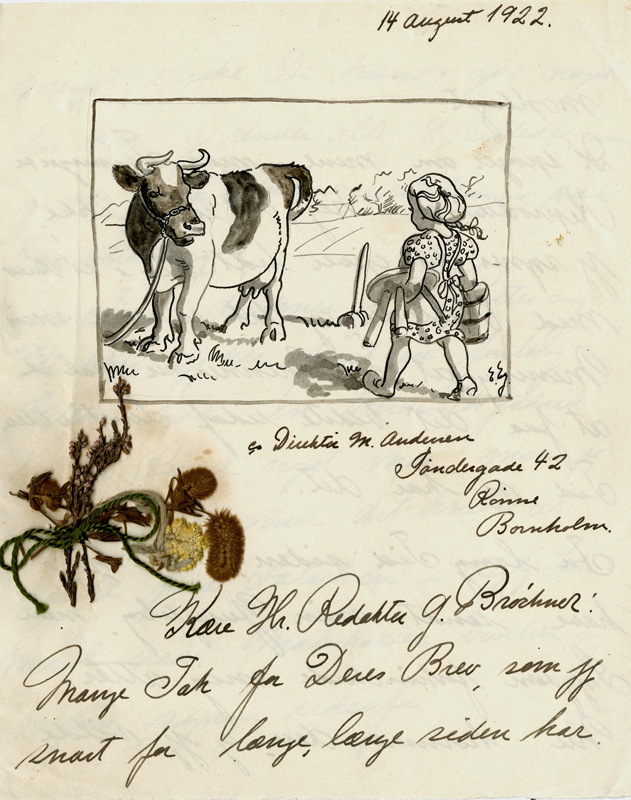 14 August 1922.
EG
c/o Direktør M. Andersen
Søndergade 42
Rönne
Bornholm.
Kære Hr. Redaktør G. Bröchner!
Mange Tak for Deres Brev, som jeg
snart for længe, længe siden har